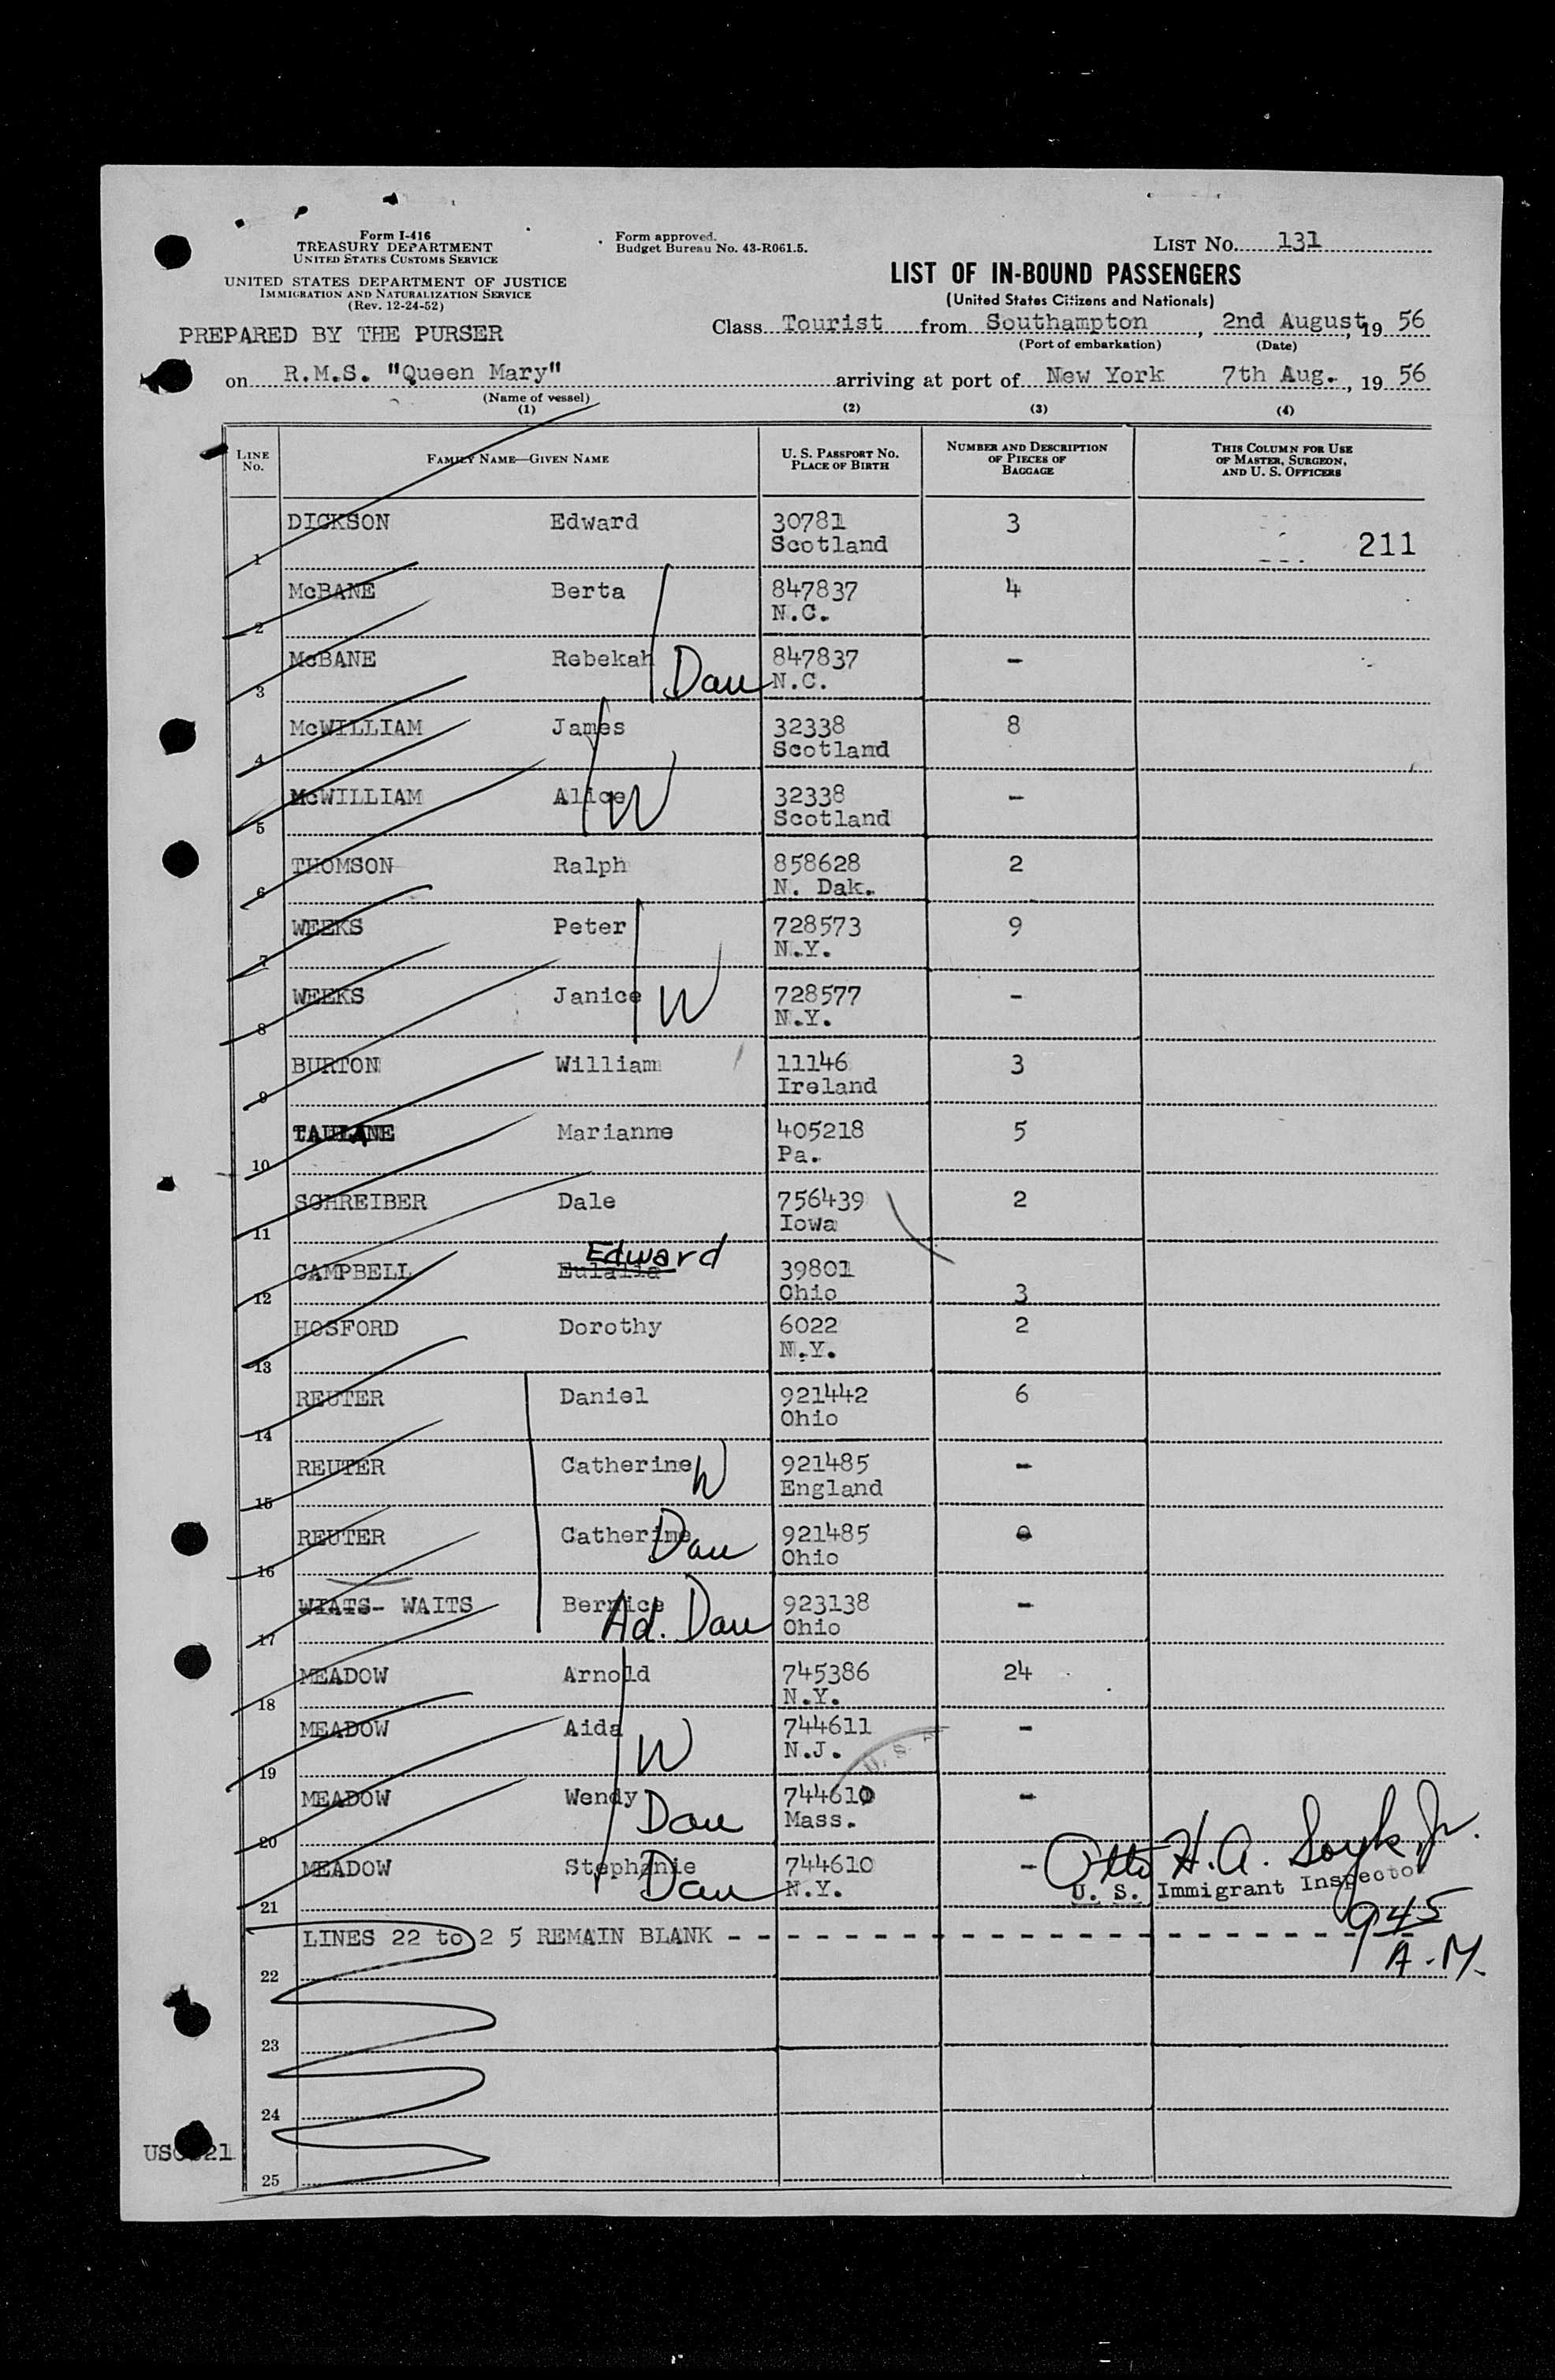 Form I-416
TREASURY DEPARTMENT
UNITED STATES CUSTOMS SERVICE
UNITED STATES DEPARTMENT OF JUSTICE
IMMIGRATION AND NATURALIZATION SERVICE
(Rev. 12-24-52)
Form approved.
Budget Bureau No. 43-R061.5.
LIST No. 131
LIST OF IN-BOUND PASSENGERS
(United States Citizens and Nationals)
PREPARED BY THE PURSER
Class Tourist from Southampton, 2nd August, 19 56
(Port of embarkation) (Date)
on R.M.S. "Queen Mary" arriving at port of New York 7th Aug., 19 56
(Name of vessel)
(1) (2) (3) (4)
LINE No. FAMILY NAME—GIVEN NAME U. S. PASSPORT No. PLACE OF BIRTH NUMBER AND DESCRIPTION OF PIECES OF BAGGAGE THIS COLUMN FOR USE OF MASTER, SURGEON, AND U. S. OFFICERS
DICKSON Edward 30781 3
1 Scotland 211
McBANE Berta 847837 4
2 N.C.
McBANE Rebekah 847837 -
3 Dau N.C.
McWILLIAM James 32338 8
4 Scotland
McWILLIAM Alice W 32338 -
5 Scotland
THOMSON Ralph 858628 2
6 N. Dak.
WEEKS Peter 728573 9
7 N.Y.
WEEKS Janice W 728577 -
8 N.Y.
BURTON William 11146 3
9 Ireland
TAULANE Marianne 405218 5
10 Pa.
SCHREIBER Dale 756439 2
11 Iowa
Edward
CAMPBELL Eulalia 39801
12 Ohio 3
HOSFORD Dorothy 6022 2
13 N.Y.
REUTER Daniel 921442 6
14 Ohio
REUTER Catherine W 921485 -
15 England
REUTER Catherine Dau 921485
16 Ohio
WIATS- WAITS Bernice 923138 -
17 Ad. Dau Ohio
MEADOW Arnold 745386 24
18 N.Y.
MEADOW Aida W 744611 -
19 N.J.
MEADOW Wendy 744610 -
20 Dau Mass.
MEADOW Stephanie 744610 -
21 Dau N.Y.
Otto H. A. Soyk, Jr.
U. S. Immigrant Inspector
945
A.M.
LINES 22 to 2 5 REMAIN BLANK - - - - - - - - - - - - - - - - - - - - - -
22
23
24
25